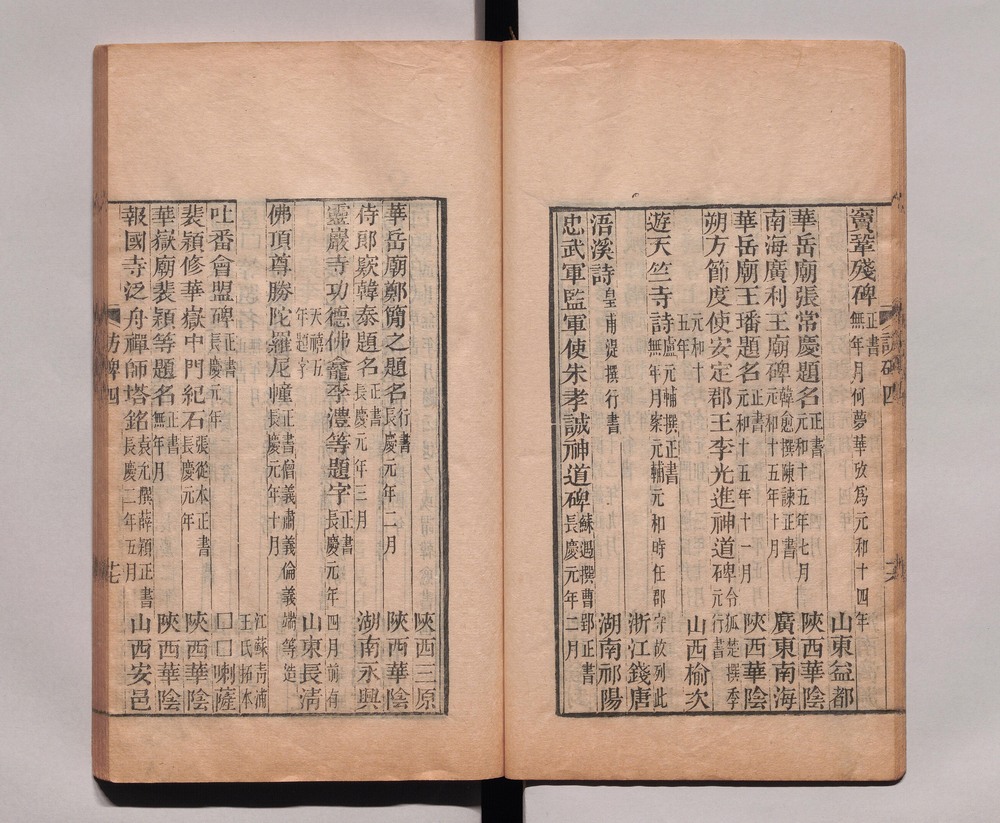 竇鞏殘碑 正書 無年月何夢華攷爲元和十四年 山東益都
華岳廟張常慶題名 正書 元和十五年七月 陝西華陰
南海廣利王廟碑 韓愈撰陳諫正書 元和十五年十月 廣東南海
華岳廟王璠題名 正書 元和十五年十一月 陝西華陰
朔方節度使安定郡王李光進神道碑 令狐楚撰季元行書
元和十五年 山西榆次
遊天竺寺詩 盧元輔撰正書 無年月案元輔元和時任郡守故列此 浙江錢唐
浯溪詩 皇甫湜撰行書 湖南祁陽
忠武軍監軍使朱孝誠神道碑 蘇遇撰曹郢正書 長慶元年二月
陝西三原
華岳廟鄭簡之題名 行書 長慶元年二月 陝西華陰
侍郎窾韓泰題名 正書 長慶元年三月 湖南永興
靈巖寺功德佛龕李澧等題字 正書 長慶元年四月前有
天禧五年題字 山東長清
佛頂尊勝陀羅尼幢 正書僧義肅義倫義端等造 長慶元年十月 江蘇靑浦王氏拓本
吐番會盟碑 正書 長慶元年 囗囗喇薩
裴穎修華嶽中門紀石 張從本正書 長慶元年 陝西華陰
華嶽廟裴穎等題名 正書 無年月 陝西華陰
報國寺泛舟禪師塔銘 袁允撰薛穎正書 長慶二年五月 山西安邑
訪碑四